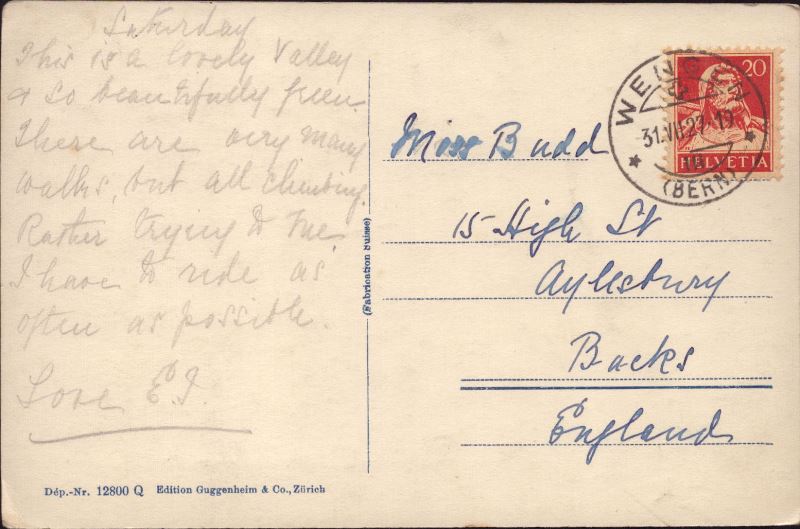 Saturday
This is a lovely Valley
& so beautifully green.
There are very many
walks, but all climbing.
Rather trying to me.
I have to ride as
often as possible.
Love E.J.
Dép.-Nr. 12800 Q Edition Guggenheim & Co., Zürich
(Fabrication Suisse)
Miss Budd
15 High St
Aylesbury
Bucks
England
20
HELVETIA
WENGEN
31.VII.27.19
(BERN)